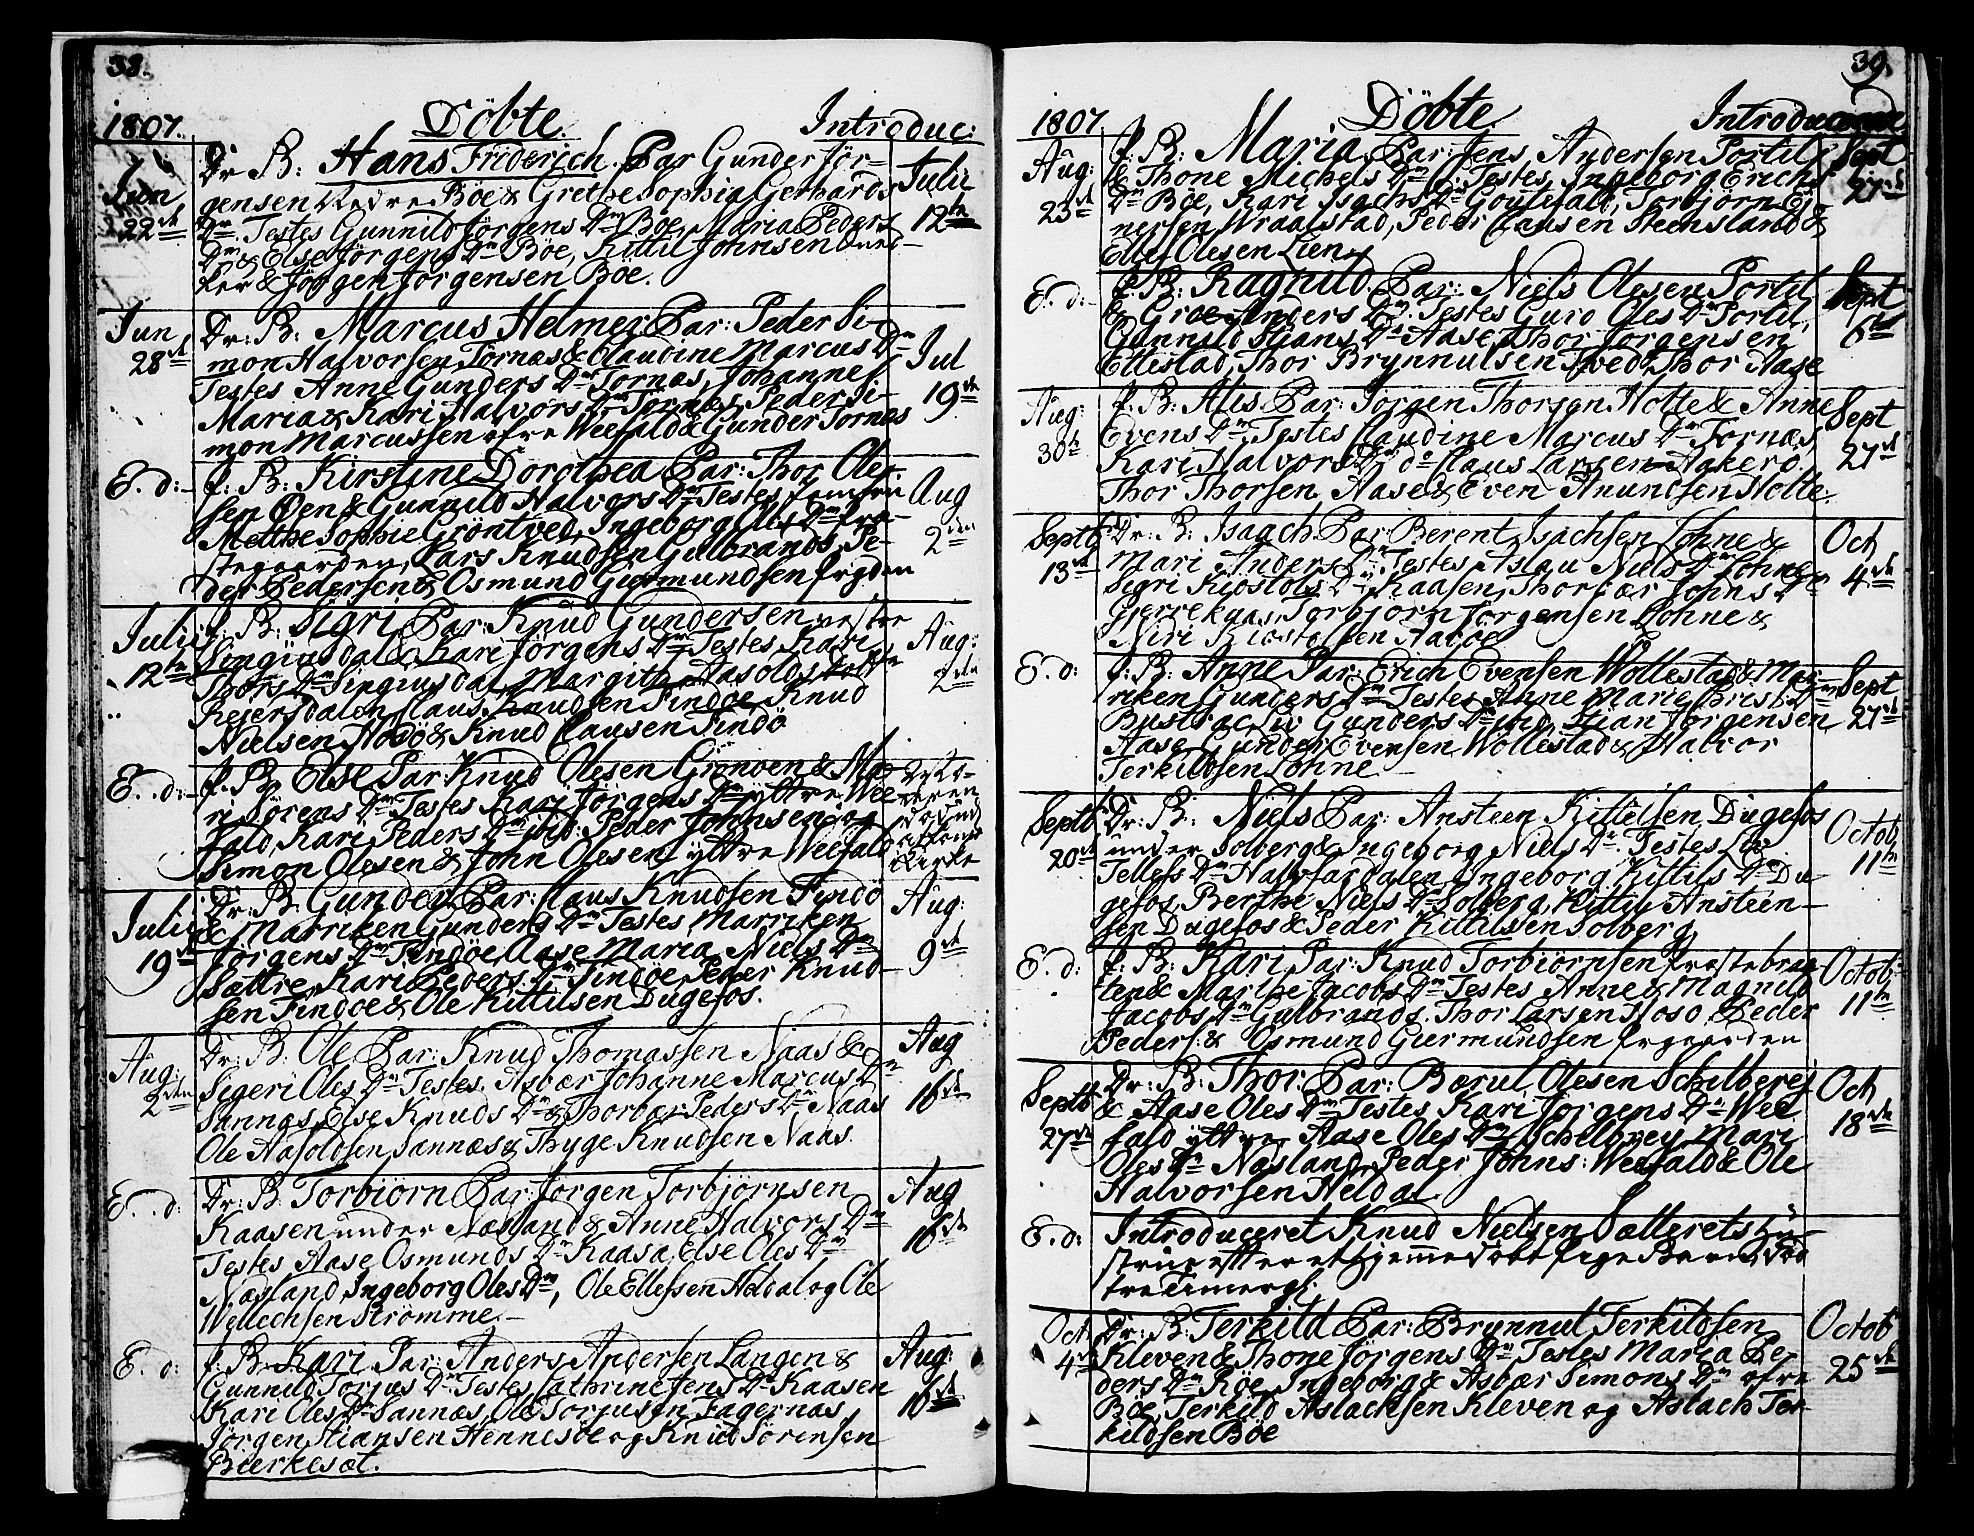 38.
1807. Döbte. Introduc:
Jun 22de
Dr. B: Hans Friderich. Par Gunder Jör-
gensen Nedre Böe & Grethe Sophia Gerhards
Dr. Testes Gunnild Jörgens Dr Böe, Maria Peders
Dr & Else Jörgens Dr Böe, Kittil Johnsen
& Jörgen Jörgensen Böe.
Julii 12te
Jun 28de
Dr: B: Marcus Helmer Par: Peder Si-
mon Halvorsen Tornæs & Claudine Marcus Dr
Testes Anne Gunders Dr Tornæs, Johanne
Maria & Kari Halvors Dr Tornæs, Peder Si-
mon Marcussen ofre Weefald & Gunder Tornæs
Jul 19de
E. d:
P. B: Kirstine Dorothea Par: Thor Ole-
sen Öen & Gunnild Halvors Dr Testes
Mette Sophie Gröntved, Ingeborg Oles Dr Præ-
stegaarden, Lars Knudsen Gulbrands, Pe-
der Pedersen & Osmund Guermundsen
Aug 2den
Julii 12te
P. B: Sigri Par: Knud Gundersen vestre
Singiusdal & Kari Jörgens Dr Testes Kari
Thors Dr Singiusdal, Margith Aasolds
Rejersdalen, Claus Knudsen Findöe, Knud
Nielsen Nodö & Knud Clausen Findö
Aug: 2den
E. d:
P. B: Else Par: Knud Olesen Grönoen & Ma-
ri Sörens Dr Testes Kari Jörgens Dr yttre Wee-
fald, Kari Peders Dr ibid: Peder Johnsen og
Simon Olesen & John Olesen yttre Weefald
Julii 19de
Dr: B: Gunder Par: Claus Knudsen Findö
& Marriken Gunders Dr Testes Marriken
Jörgens Dr Findöe, Aase Maria Niels Dr
Sættre, Kari Peders Dr Findöe, Peder Knud-
sen Findöe & Ole Kittilsen Dugefos.
Aug: 9de
Aug: 2den
Dr: B: Ole Par: Knud Thomassen Naas &
Segeri Oles Dr Testes. Asbær Johanne Marcus Dr
Sannæs, Else Knuds Dr & Thorbær Peders Dr Naas
Ole Aasoldsen Sannæs & Thyge Knudsen Naas.
Aug 16de
E. d:
Dr: B: Torbiörn Par: Jörgen Torbjörnsen
Kaasen under Næsland & Anne Halvors Dr
Testes Aase Osmunds Dr Kaasa, Else Oles Dr
Næsland, Ingeborg Oles Dr, Ole Ellefsen Heldal og Ole
Wellechsen Strömme.
Aug 16de
E. d:
P. B: Kari Par: Anders Andersen Langen &
Gunnild Torjus Dr Testes Cathrine Jens Dr Kaasen
Kari Oles Dr Sannæs, Ole Torjusen Fagernæs,
Jörgen Stiansen Hennesöe og Knud Sörensen
Bierkesæt.
Aug: 16de
39.
1807 Döbte
Aug: 23de
P. B: Maria, Par: Jens Andersen Portil
& Thone Michels Dr: Testes, Ingeborg Erichs
Dr Böe, Kari Isachs Dr Goulefald, Torbjörn Ej-
nersen Wraalstad, Peder Clausen Steensland &
Ellef Olesen Lien
Sept 27de
E. d:
P. B: Ragnild. Par: Niels Olesen Portil
& Groe Anders Dr Testes Guro Oles Dr Portil,
Gunnild Stians Dr Aase, Thor Jörgensen
Ellestad, Thor Brynnulsen Tvedt, Thor Aase
Sept 6te
Aug: 30te
P. B: Alis Par: Jörgen Thorsen Holte & Anne
Evens Dr, Testes Claudine Marcus Dr Tornæs,
Kari Halvors Dr do Claus Larsen Aakerö
Thor Thorsen Aase & Even Anundsen Holte.
Sept 27de
Septb 13de
Dr: B: Isaach Par Berent Isachsen Lohne &
Mari Anders Dr Testes Aslau Niels Dr Lohne
Sigri Kiostols Dr Kaasen, Thorbær Johns Dr
Gierrekaas, Torbjörn Jörgensen Lohne &
Niri Kiostolsen Aaböe
Oct 4de
E. d:
P. B: Anne Par: Erich Evensen Wollestad & Mar-
riken Gunders Dr Testes Anne Marie Christ: Dr
Bustrac, Liv Gunders Dr ibid, Stian Jörgensen
Aase, Gunder Evensen Wollestad & Halvor
Terkildsen Lohne
Sept 27de
Septb 20de
Dr: B: Niels Par: Ansteen Kittelsen Dugefos
under Solberg & Ingeborg Niels Dr. Testes Liv
Tellefs Dr Halvfardalen, Ingeborg Kittils Dr Du-
gefos, Berthe Niels Dr Solberg, Kittil Ansteen-
sen Dugefos & Peder Kittilsen Solberg
Octob 11te
E. d:
P. B: Kari Par: Knud Torbiörnsen
& Marthe Jacobs Dr Testes Anne & Magnild
Jacobs Dr Gulbrands, Thor Larsen Noso, Peder
Peders: & Osmund Guermundsen
Octob 11te
Septb 27de
Dr: B: Thor Par: Bærul Olesen Schelbrej
& Aase Oles Dr Testes Kari Jörgens Dr Wee-
fald yttre, Aase Oles Dr Schelbrey, Mari
Oles Dr Næsland, Peder Johns: Weefald & Ole
Halvorsen Heldal
Oct 18de
E. d:
Introduceret Knud Nielsen Sætterets Hu-
strue efter et hjemmedöbt Pige Barns
Oct 4de
Dr: B: Terkild Par: Brynnul Terkildsen
Kleven & Thone Jörgens Dr Testes Maria Pe-
ders Dr Böe, Ingeborg & Asbær Simons Dr ofre
Böe, Terkild Aslachsen Kleven og Aslach Ter-
kildsen Böe
Octob 25de